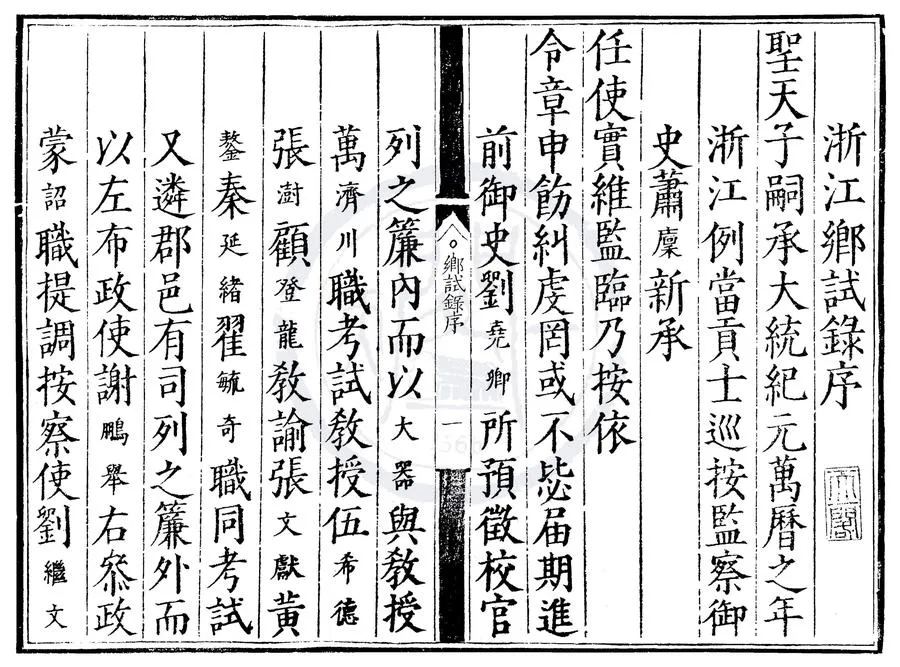 浙江鄉試錄序
聖天子嗣承大統紀元萬曆之年
浙江例當貢士巡按監察御
史蕭廩新承
任使實維監臨乃按依
令章申飭糾虔罔或不毖届期進
前御史劉堯卿所預徵校官
鄉試錄序
一
列之簾內而以大器與教授
萬濟川職考試教授伍希德
張澍顧登龍教諭張文獻黃
鏊秦延緒翟毓奇職同考試
又遴郡邑有司列之簾外而
以左布政使謝鵬舉右叅政
蒙詔職提調按察使劉繼文